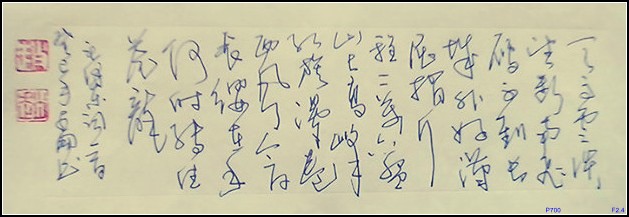 天高云淡
望断南飞
雁不到长
城非好漢
屈指行
程二萬六盤
山上高峰
红旗漫卷
西风今日
长缨在手
何时缚住
苍龍
毛泽东词一首
癸巳年
P700
F2.4